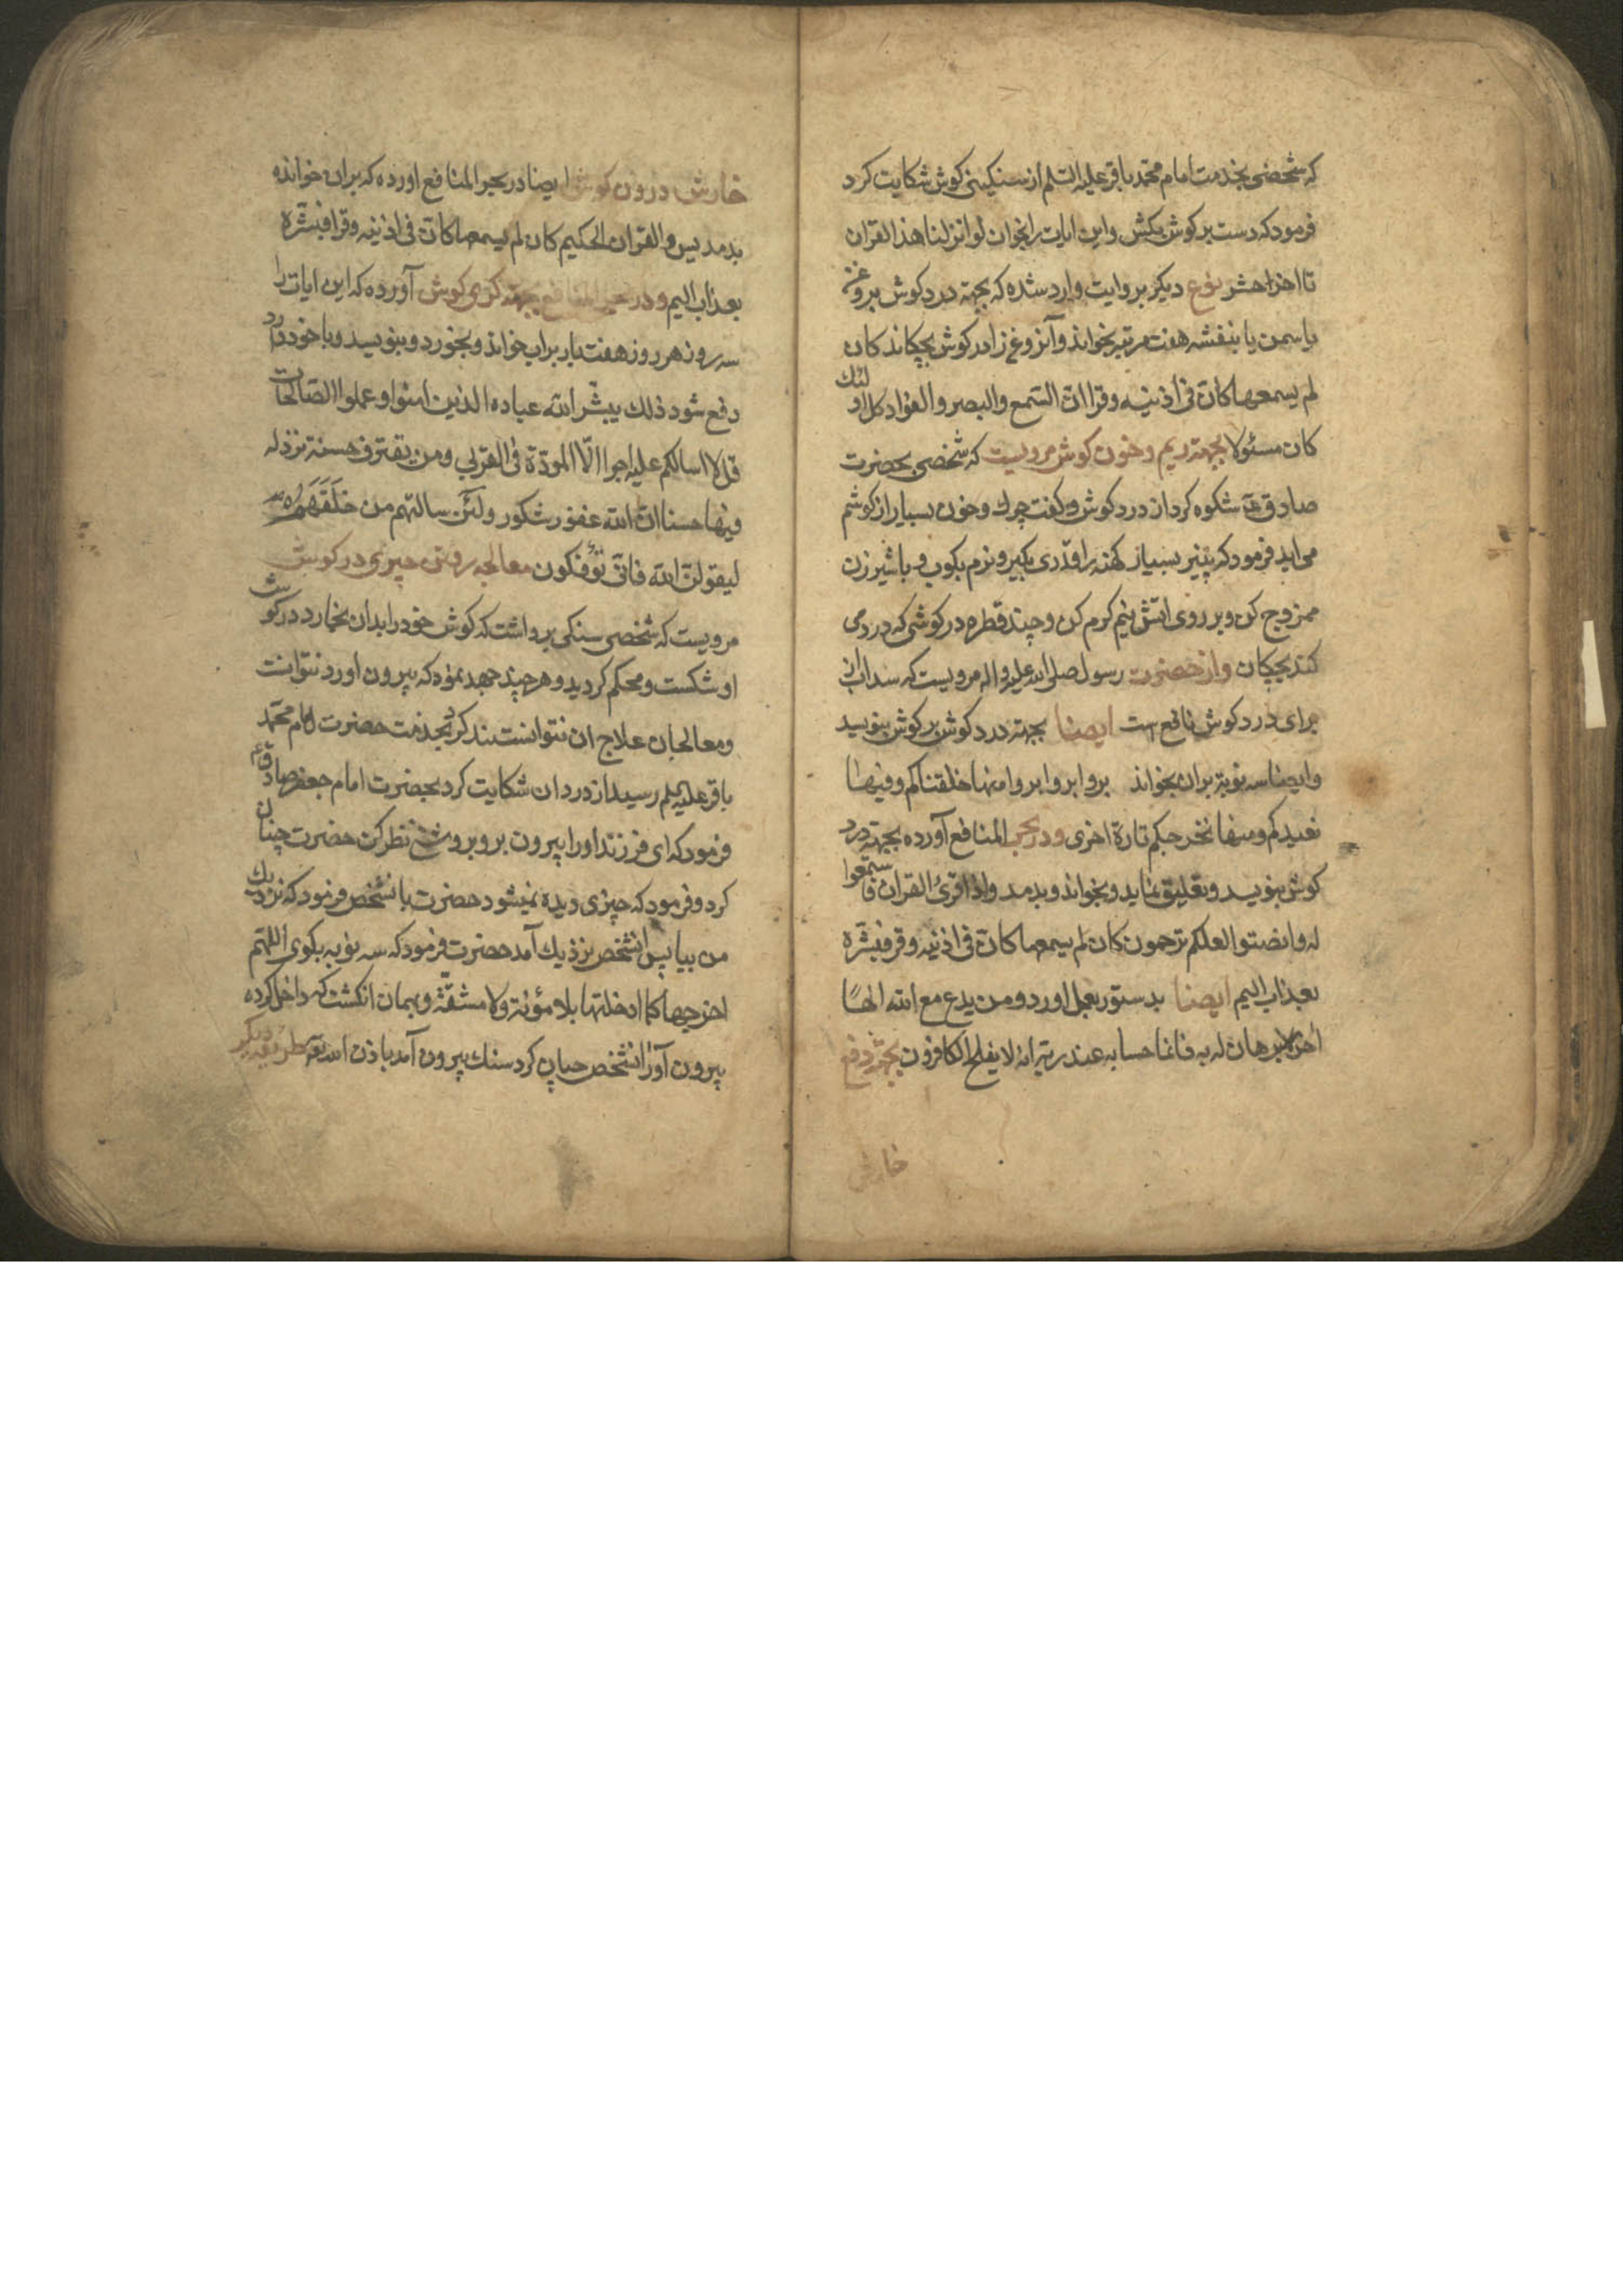 که شخصی بخدمت امام محمد باقر علیه السلم از سنکینی کوش شکایت کرد
فرمود که دست بر کوش بکش و این ایات را بخوان لو انزلنا هذا القران
تا اخر احشر نوع دیکر بروایت وارد شده که بجهته درد کوش بروغن
یاسمن یا بنفشه هفت مرتبه بخواند و آنروغن را در کوش بچکاند کان
لم یسمعها کان فی اذنیه وقرا ان السمع والبصر والفؤاد کل اولئك
کان مسئولا بجهته ریم و خون کوش مرویست که شخصی بحضرت
صادق ع شکوه کرد از درد کوش و کفت چرك و خون بسیار از کوشم
می اید فرمود که پنیر بسیار کهنه را قدری بکیر و نرم بکوب و با شیر زن
ممزوج کن و بر روی اتش نیم کرم کن و چند قطره در کوشی که درد می
کند بچکان و از حضرت رسول صلی الله علیه واله مرویست که سداب از
برای درد کوش نافع است ایضا بجهته درد کوش بر کوش بنویسد
و ایضا سه نوبة بران بخواند بروا بروا بروا منها خلقناکم و فیها
نعیدکم ومنها نخرجکم تارة اخری و در بحر المنافع آورده بجهته درد
کوش بنویسد و تعلیق نماید و بخواند و بدمد واذا قرئ القران فاستمعوا
له وانصتوا لعلکم ترحمون کان لم یسمعها کان فی اذنیه وقرا فبشره
بعذاب الیم ایضا بدستور بعمل اورد ومن یدع مع الله الها
اخر لا برهان له به فانما حسابه عند ربه انه لا یفلح الکافرون بجهته دفع
خارش
خارش درون کوش ایضا در بحر المنافع اورده که بران خوانده
بدمد یس والقران الحکیم کان لم یسمعها کان فی اذنیه وقرا فبشره
بعذاب الیم و در بحر المنافع بجهته کری کوش آورده که این ایات را
سه روز هر روز هفت بار براب خواند و بخورد و بنویسد و با خود دارد
دفع شود ذلك یبشر الله عباده الذین امنوا وعملوا الصالحات
قل لا اسالکم علیه اجرا الا المودة فی القربی ومن یقترف حسنة نزد له
فیها حسنا ان الله غفور شکور ولئن سالتهم من خلقهم
لیقولن الله فانی تؤفکون معالجه رفتن چیزی در کوش
مرویست که شخصی سنکی برداشت که کوش خود را بدان بخارد در کوش
او شکست و محکم کردید و هر چند جهد نمود که بیرون اورد نتوانست
و معالجان علاج ان نتوانستند کرد بخدمت حضرت امام محمد
باقر علیه السلم رسید از درد ان شکایت کرد بحضرت امام جعفر صادق ع
فرمود که ای فرزند او را بیرون بر و بروشنی نظر کن حضرت چنان
کرد و فرمود که چیزی دیده نمیشود حضرت بانشخص فرمود که نزدیك
من بیا پس انشخص نزدیك آمد حضرت فرمود که سه نوبه بکوی اللهم
اخرجها کما ادخلتها بلا مؤنة ولا مشقة و بهمان انکشت که داخل کرده
بیرون آور انشخص چنان کرد سنك بیرون آمد باذن الله تعه طریقه دیکر